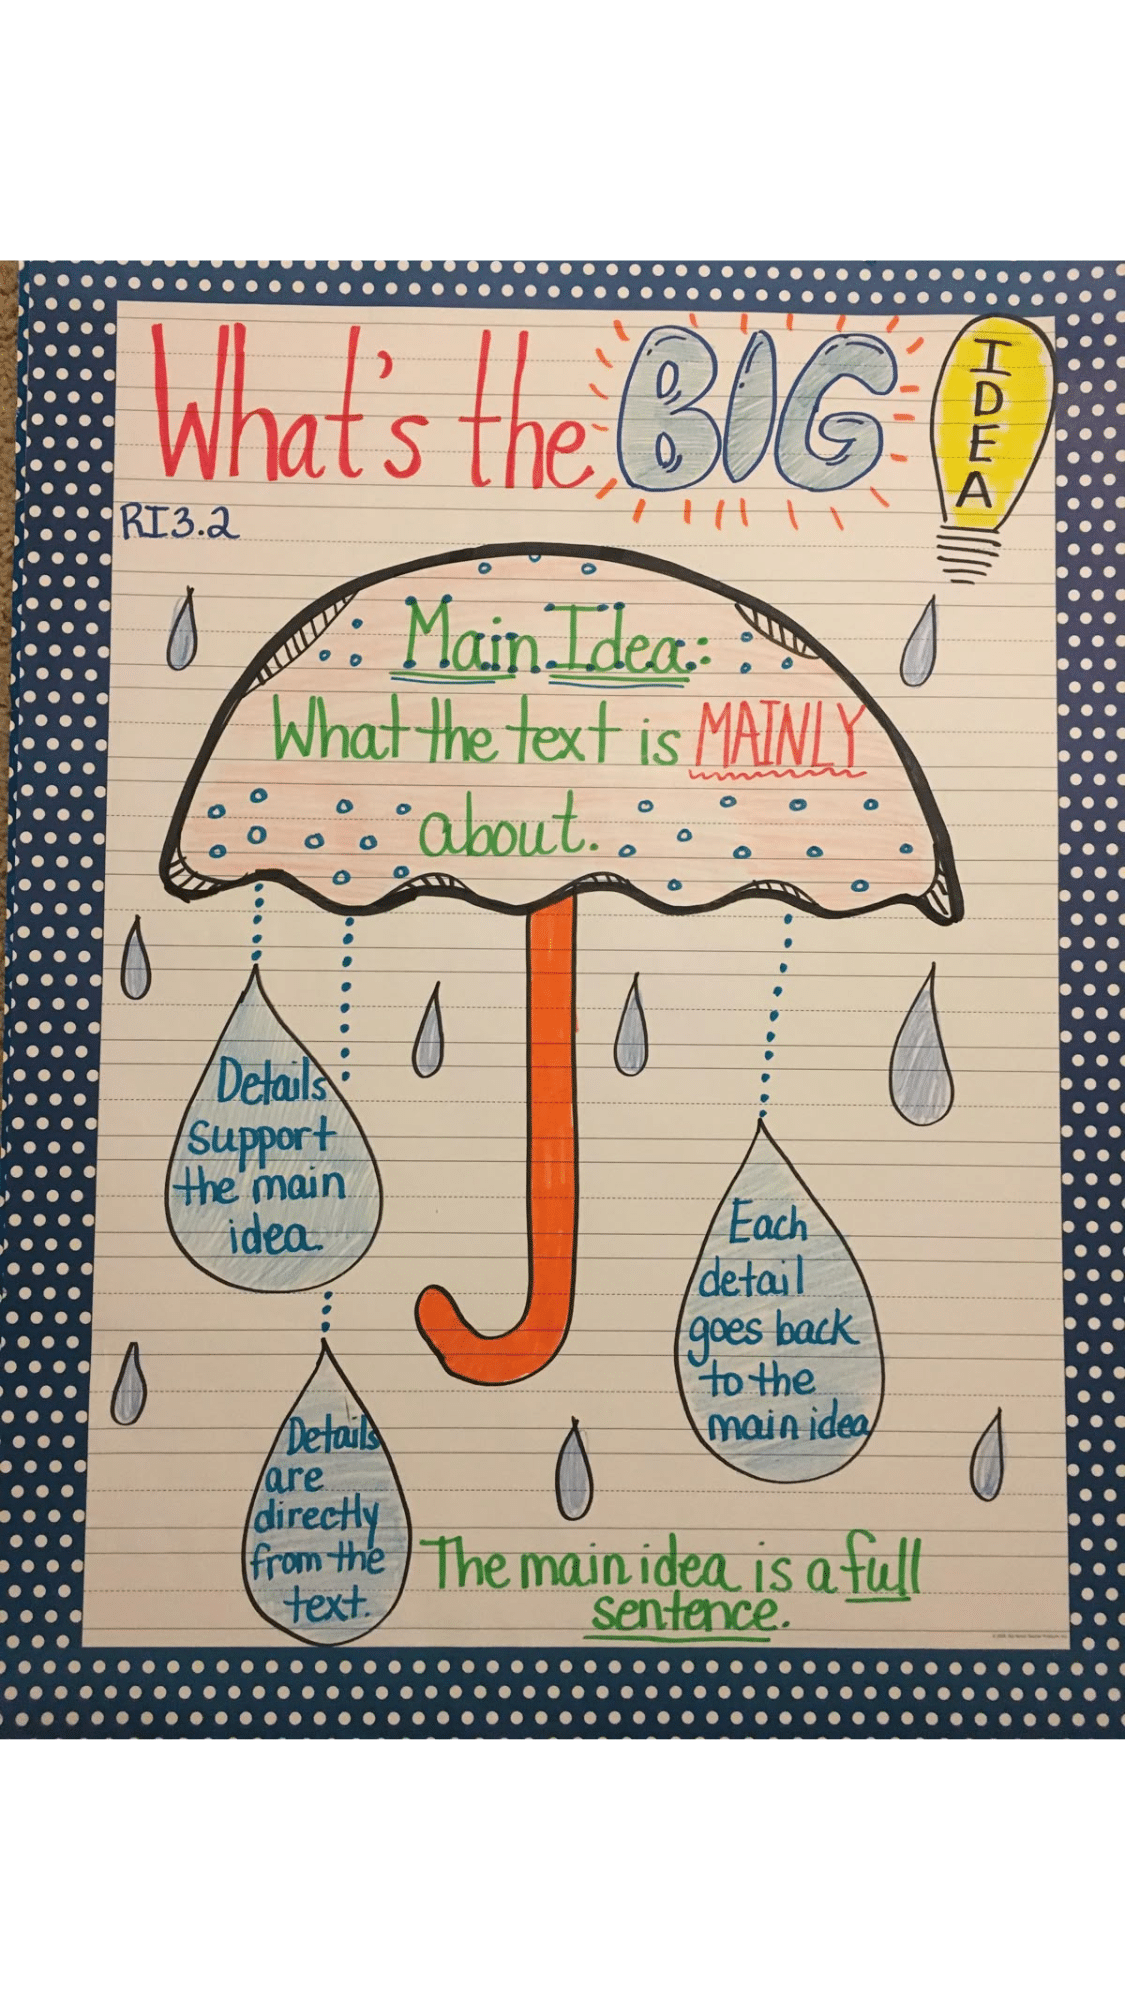 What's the BIG IDEA
RI3.2
Main Idea:
What the text is MAINLY
about.
Details
support
the main
idea.
Each
detail
goes back
to the
main idea
Details
are
directly
from the
text.
The main idea is a full
sentence.